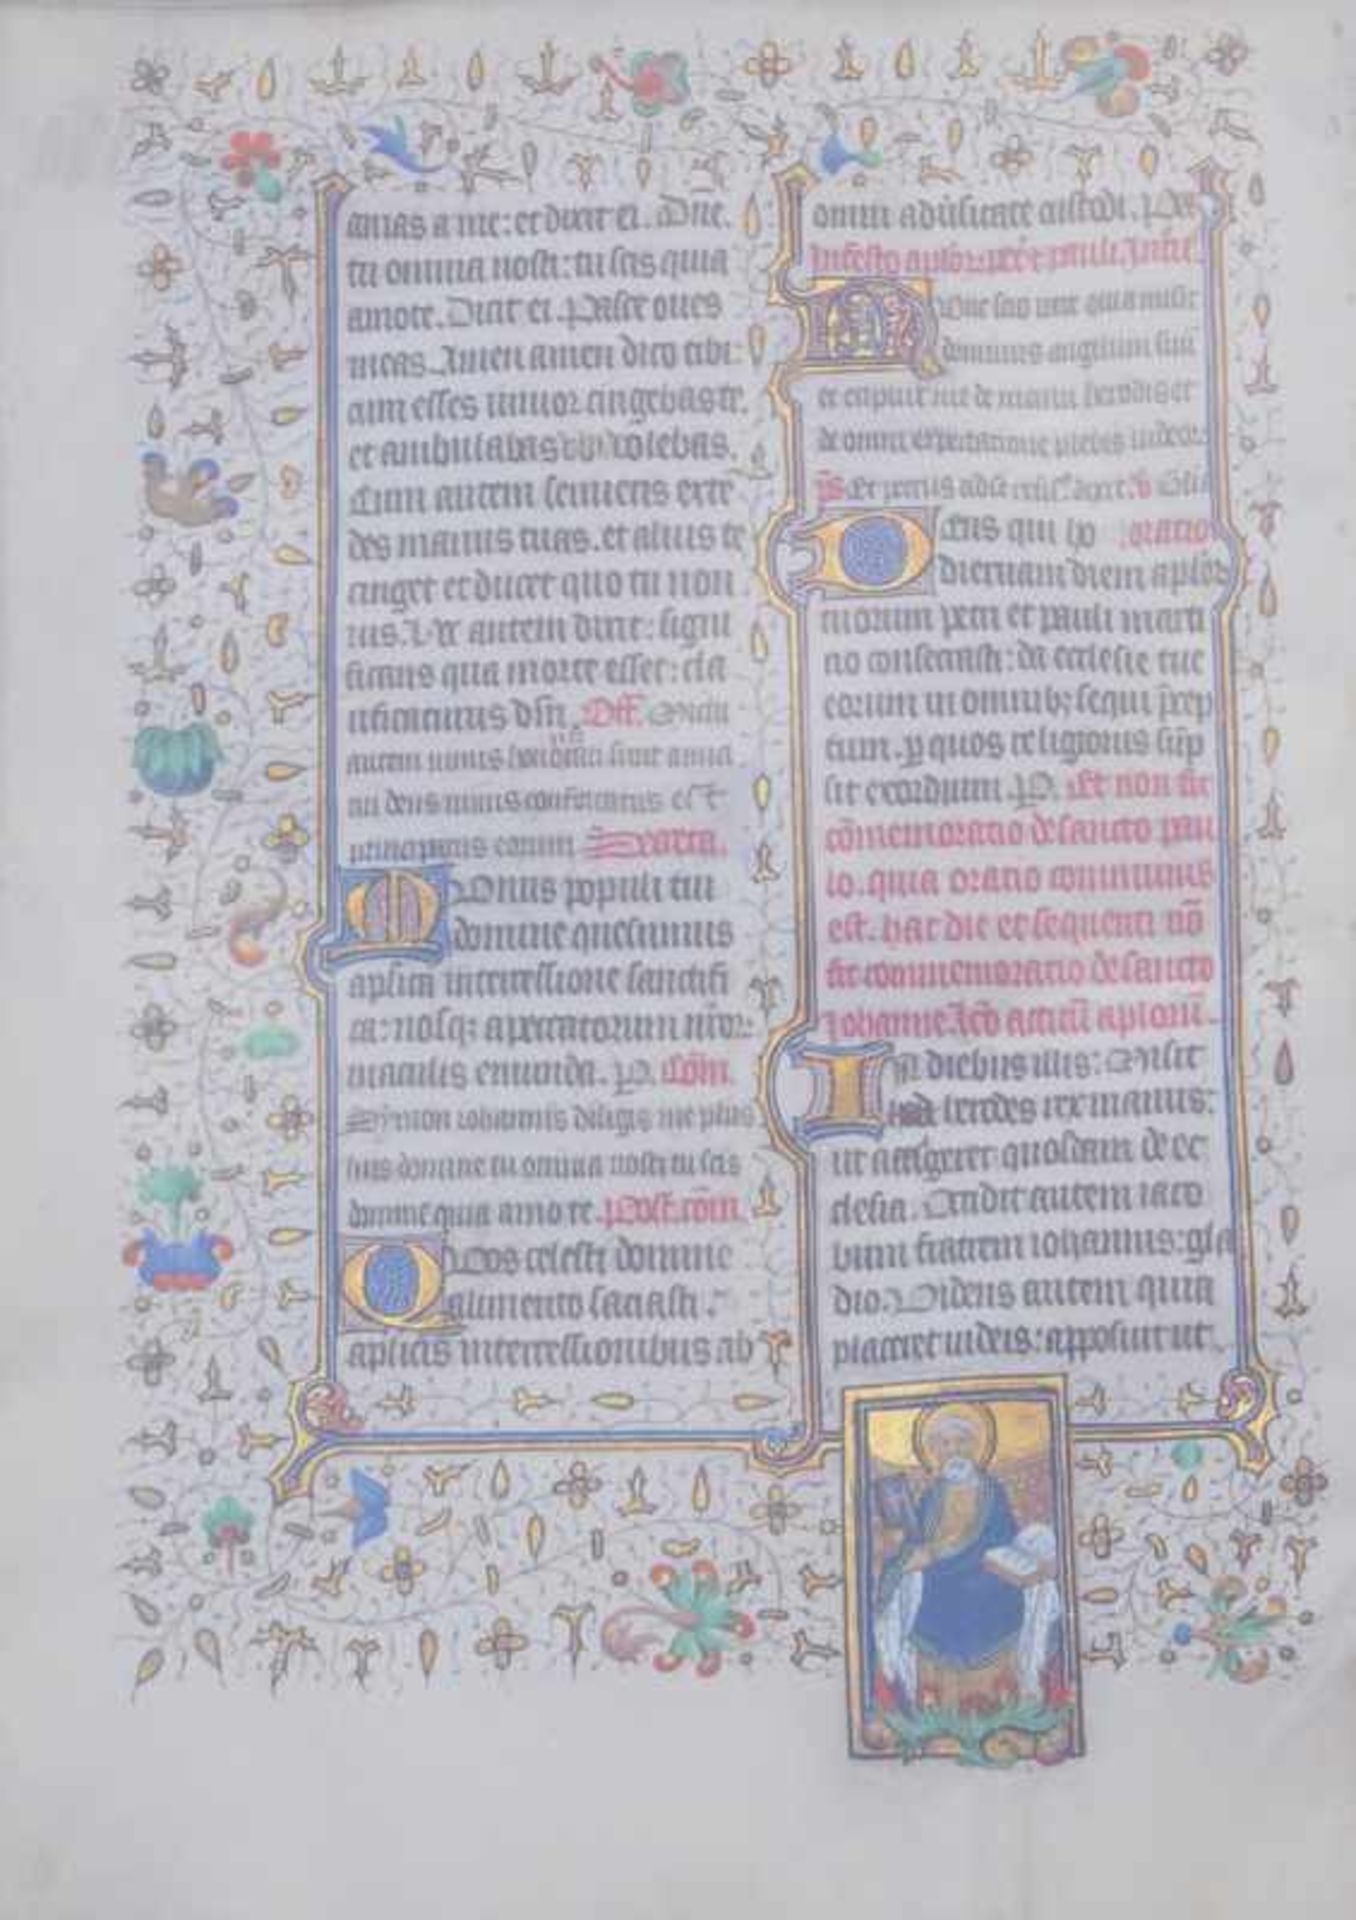 amas a me: et dixit ei. Dne.
tu omnia nosti: tu scis quia
amo te. Dicit ei. Pasce oues
meas. Amen amen dico tibi:
cum esses iunior cingebas te.
et ambulabas ubi uolebas.
Cum autem senueris exten
des manus tuas. et alius te
cinget et ducet quo tu non
uis. Hec autem dixit: signi
ficans qua morte esset: cla
rificaturus dm. Off.
autem nimis honorati sunt amici
tui deus nimis confortatus est
principatus eorum Secreta.
Munus populi tui
domine quesumus
aplica intercessione sanctifi
ca: nosq; a peccatorum nror:
maculis emunda. P. Com.
Symon iohannis diligis me plus
his domine tu omnia nosti tu scis
domine quia amo te. Post com.
Quos celesti domine
alimento saciasti.
aplicis intercessionibus ab
omni aduersitate custodi. Per
In festo aplor. petri et pauli. Introit
Nunc scio uere quia misit
dominus angelum suu
et eripuit me de manu herodis et
de omni expectatione plebis iudeor.
Deus qui ho oratio
diernam diem aplor.
tuorum petri et pauli marti
rio consecrasti: da ecclesie tue
eorum in omnib; sequi precep
tum. p quos religionis sup
sit exordium. P. Et non fit
comemoratio de sancto pau
lo. quia oratio communis
est. hac die et sequenti no
fit commemoratio de sancto
Johanne. Lco actuu aplorum.
In diebus illis: Misit
herodes rex manus:
ut affligeret quosdam de ec
clesia. Occidit autem iaco
bum fratrem iohannis: gla
dio. Videns autem quia
placeret iudeis: apposuit ut